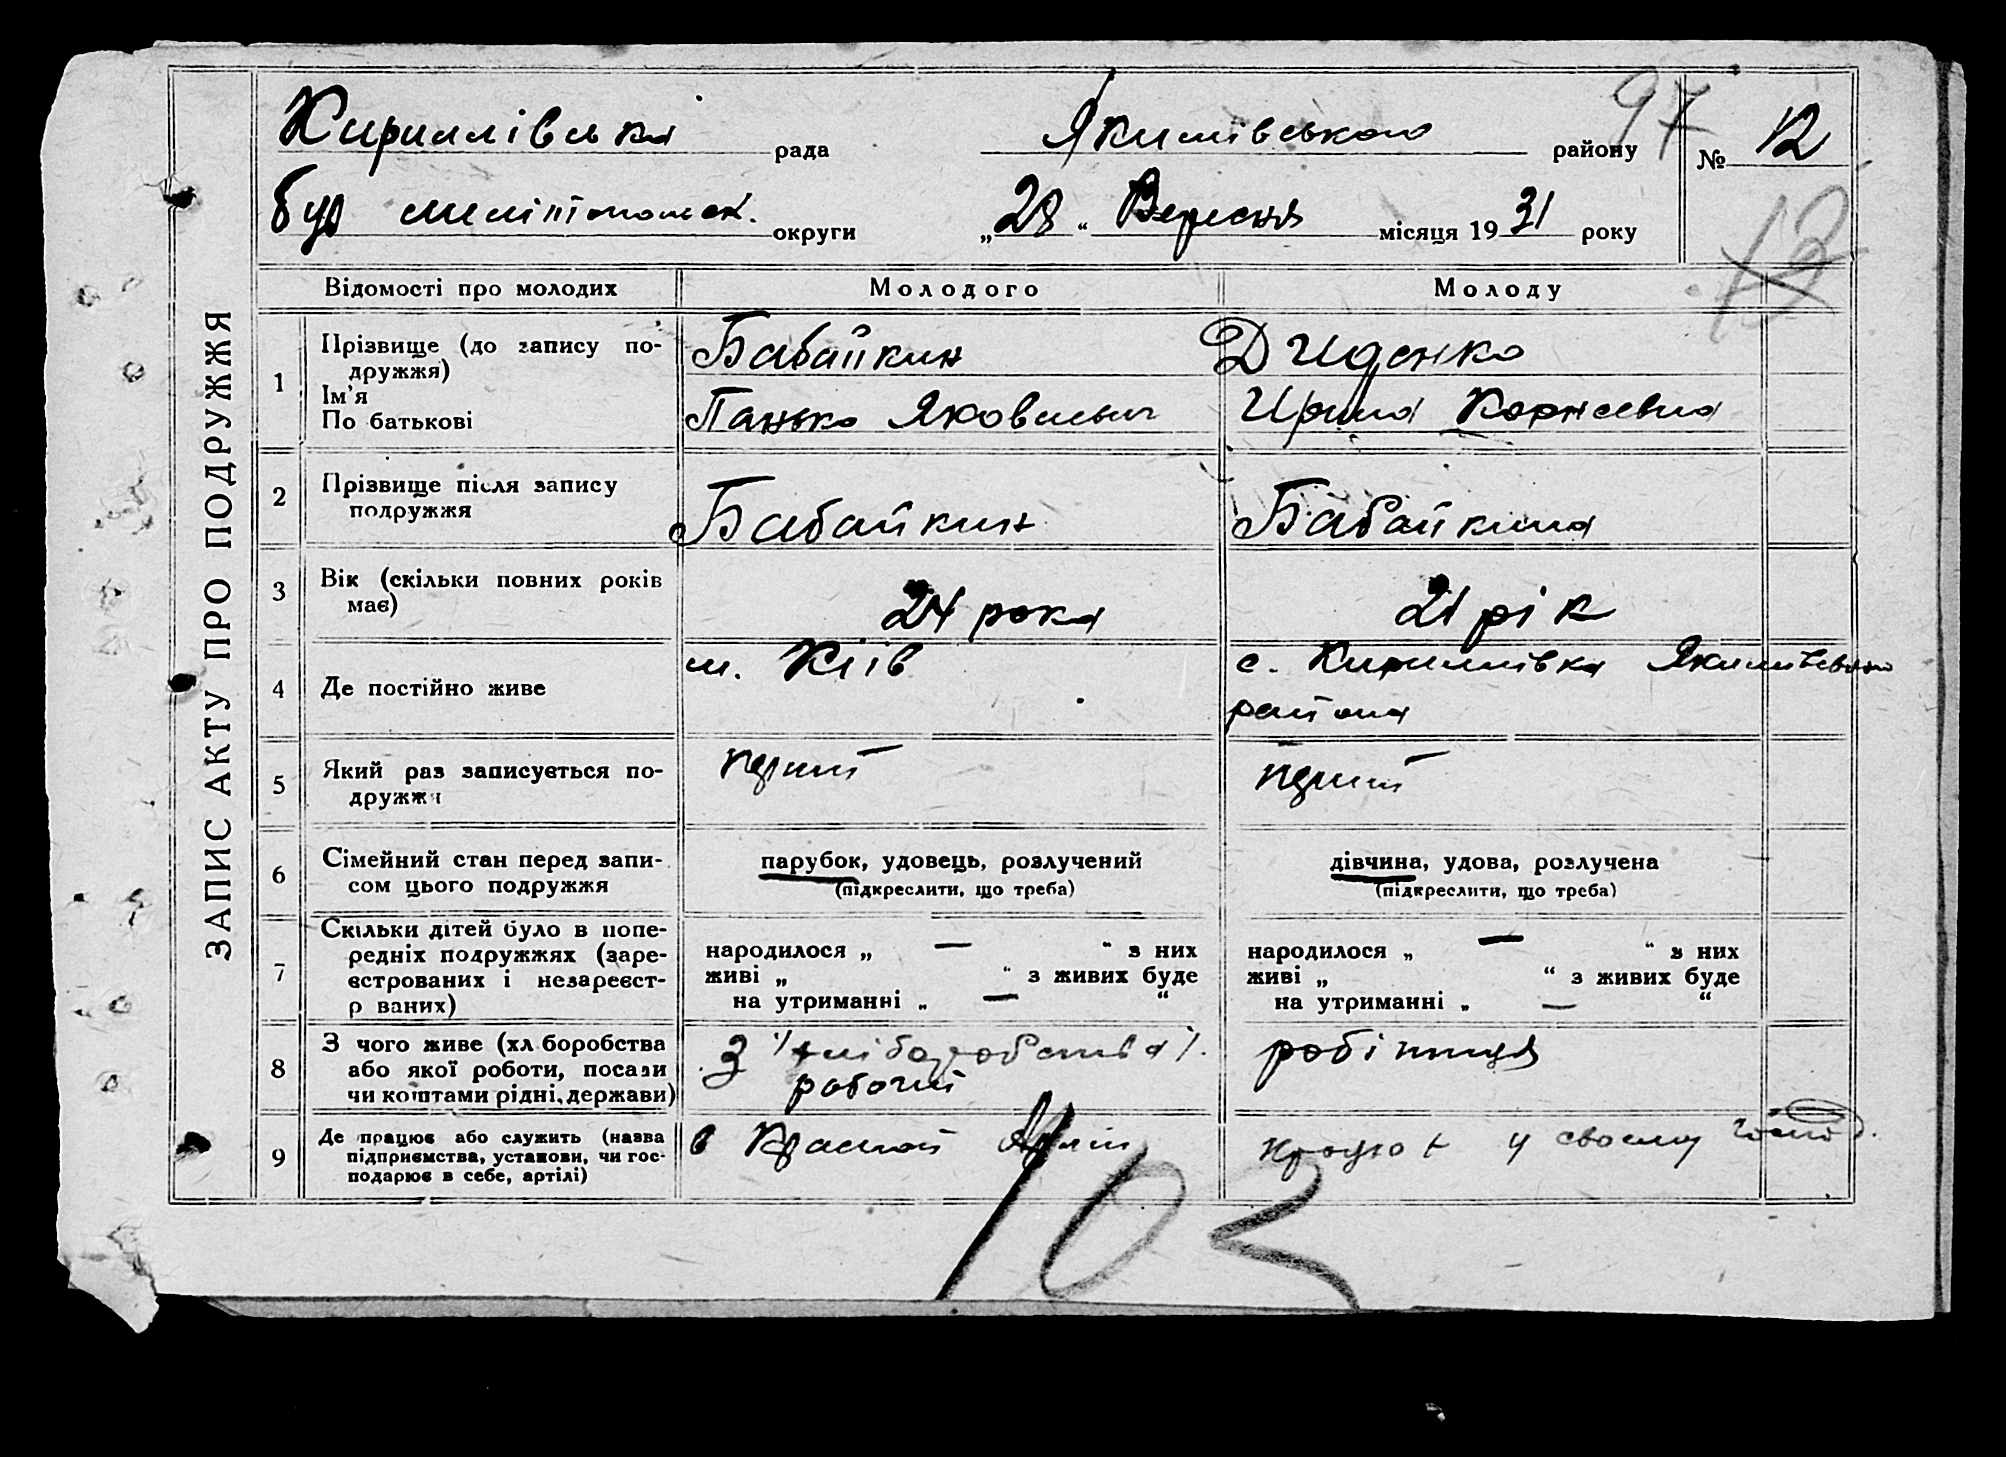 ЗАПИС АКТУ ПРО ПОДРУЖЖЯ
Кириллівська рада Якимівського району № 12
97
був мелітопольск. округи „28“ Вересня місяця 1931 року
13
Відомості про молодих Молодого Молоду
1 Прізвище (до запису по-
дружжя)
Ім'я
По батькові
Бабайкин
Панько Яковлевич
Диденко
Ирина Корнеевна
2 Прізвище після запису
подружжя
Бабайкин
Бабайкина
3 Вік (скільки повних років
має)
24 рока
21 рік
4 Де постійно живе
м. Київ
с. Кириллівка Якимівського
района
5 Який раз записується по-
дружжя
перший
перший
6 Сімейний стан перед запи-
сом цього подружжя
парубок, удовець, розлучений
(підкреслити, що треба)
дівчина, удова, розлучена
(підкреслити, що треба)
7 Скільки дітей було в попе-
редніх подружжях (заре-
єстрованих і незареєст-
р ваних)
народилося „ — “ з них
живі „ “ з живих буде
на утриманні „ — “
народилося „ — “ з них
живі „ “ з живих буде
на утриманні „ — “
8 З чого живе (хл боробства
або якої роботи, посади
чи коштами рідні, держави)
З /хліборобства/.
робочий
робітниця
9 Де працює або служить (назва
підприємства, установи, чи гос-
подарює в себе, артілі)
в Красной Армії
працює у своєму госп.
102